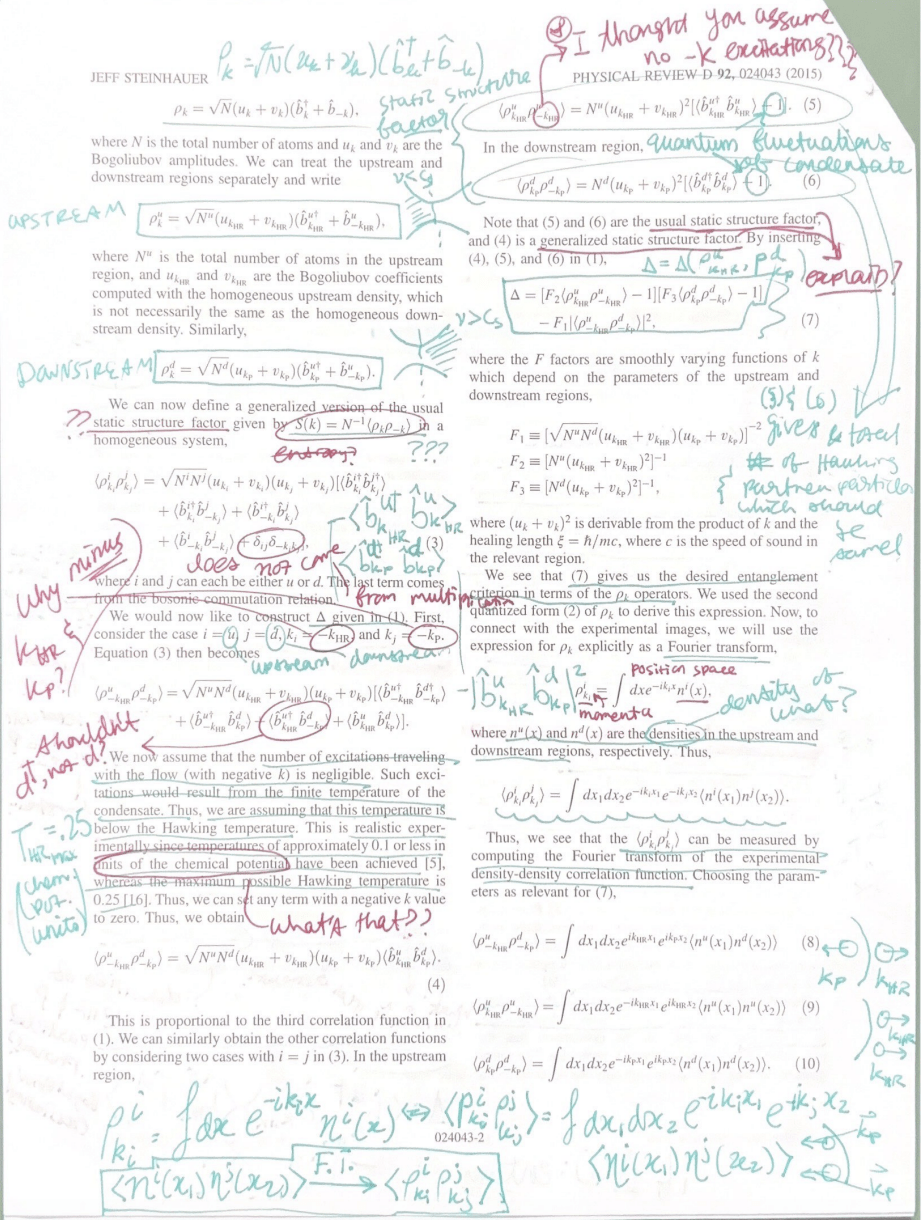 ρ_k = √N(u_k + v_k)(b̂†_k + b̂_-k)
⊗ I thought you assume
no -K excitations}}
JEFF STEINHAUER
PHYSICAL REVIEW D 92, 024043 (2015)
ρ_k = √N(u_k + v_k)(b̂†_k + b̂_-k),
static structure
factor
where N is the total number of atoms and u_k and v_k are the
Bogoliubov amplitudes. We can treat the upstream and
downstream regions separately and write
v<c_s
UPSTREAM
ρ^u_k = √N^u(u_kHR + v_kHR)(b̂^u†_kHR + b̂^u_-kHR),
where N^u is the total number of atoms in the upstream
region, and u_kHR and v_kHR are the Bogoliubov coefficients
computed with the homogeneous upstream density, which
is not necessarily the same as the homogeneous down-
stream density. Similarly,
v>c_s
DOWNSTREAM
ρ^d_k = √N^d(u_kP + v_kP)(b̂^u†_kP + b̂^u_-kP).
We can now define a generalized version of the usual
??
static structure factor given by S(k) = N^-1⟨ρ_kρ_-k⟩ in a
homogeneous system,
entropy?
???
⟨ρ^i_ki ρ^j_kj⟩ = √N^iN^j(u_ki + v_ki)(u_kj + v_kj)[⟨b̂^i†_ki b̂^j†_kj⟩
+ ⟨b̂^i†_ki b̂^j_-kj⟩ + ⟨b̂^i†_-ki b̂^j_kj⟩
+ ⟨b̂^i_-ki b̂^j_-kj⟩ + δ_ijδ_-ki,kj], (3)
⟨b̂^u†_kHR b̂^u_kHR
b̂^d†_kP b̂^d_kP⟩
does not come
from multiplication
where i and j can each be either u or d. The last term comes
from the bosonic commutation relation.
Why minus
k_HR &
k_P?
We would now like to construct Δ given in (1). First,
consider the case i = u, j = d, k_i = -k_HR and k_j = -k_P.
Equation (3) then becomes
upstream downstream
⟨ρ^u_-kHR ρ^d_-kP⟩ = √N^uN^d(u_kHR + v_kHR)(u_kP + v_kP)[⟨b̂^u†_-kHR b̂^d†_-kP⟩
+ ⟨b̂^u†_-kHR b̂^d_kP⟩ + ⟨b̂^u†_kHR b̂^d_-kP⟩ + ⟨b̂^u_kHR b̂^d_kP⟩].
Shouldn't
d†, not d?
We now assume that the number of excitations traveling
with the flow (with negative k) is negligible. Such exci-
tations would result from the finite temperature of the
condensate. Thus, we are assuming that this temperature is
below the Hawking temperature. This is realistic exper-
imentally since temperatures of approximately 0.1 or less in
units of the chemical potential have been achieved [5],
whereas the maximum possible Hawking temperature is
0.25 [16]. Thus, we can set any term with a negative k value
to zero. Thus, we obtain
T_HR max = .25
(chem.
pot.
units)
What's that??
⟨ρ^u_-kHR ρ^d_-kP⟩ = √N^uN^d(u_kHR + v_kHR)(u_kP + v_kP)⟨b̂^u_kHR b̂^d_kP⟩.
(4)
This is proportional to the third correlation function in
(1). We can similarly obtain the other correlation functions
by considering two cases with i = j in (3). In the upstream
region,
⟨ρ^u_kHR ρ^u_-kHR⟩ = N^u(u_kHR + v_kHR)^2[⟨b̂^u†_kHR b̂^u_kHR⟩ + 1]. (5)
In the downstream region,
quantum fluctuations
of condensate
⟨ρ^d_kP ρ^d_-kP⟩ = N^d(u_kP + v_kP)^2[⟨b̂^d†_kP b̂^d_kP⟩ + 1]. (6)
Note that (5) and (6) are the usual static structure factor,
and (4) is a generalized static structure factor. By inserting
(4), (5), and (6) in (1),
Δ = Δ(ρ^u_kHR, ρ^d_kP)
explain?
Δ = [F_2⟨ρ^u_kHR ρ^u_-kHR⟩ - 1][F_3⟨ρ^d_kP ρ^d_-kP⟩ - 1]
- F_1|⟨ρ^u_-kHR ρ^d_-kP⟩|^2, (7)
where the F factors are smoothly varying functions of k
which depend on the parameters of the upstream and
downstream regions,
F_1 ≡ [√N^uN^d(u_kHR + v_kHR)(u_kP + v_kP)]^-2
F_2 ≡ [N^u(u_kHR + v_kHR)^2]^-1
F_3 ≡ [N^d(u_kP + v_kP)^2]^-1,
(5) & (6)
gives total
# of Hawking
& partner particles
which should
be same!
where (u_k + v_k)^2 is derivable from the product of k and the
healing length ξ = ℏ/mc, where c is the speed of sound in
the relevant region.
We see that (7) gives us the desired entanglement
criterion in terms of the ρ_k operators. We used the second
quantized form (2) of ρ_k to derive this expression. Now, to
connect with the experimental images, we will use the
expression for ρ_k explicitly as a Fourier transform,
-|b̂^u_kHR b̂^d_kP|^2
position space
ρ^i_ki = ∫ dxe^-ik_ix n^i(x),
momenta
density of
what?
where n^u(x) and n^d(x) are the densities in the upstream and
downstream regions, respectively. Thus,
⟨ρ^i_ki ρ^j_kj⟩ = ∫ dx_1dx_2e^-ik_ix_1 e^-ik_jx_2⟨n^i(x_1)n^j(x_2)⟩.
Thus, we see that the ⟨ρ^i_ki ρ^j_kj⟩ can be measured by
computing the Fourier transform of the experimental
density-density correlation function. Choosing the param-
eters as relevant for (7),
⟨ρ^u_-kHR ρ^d_-kP⟩ = ∫ dx_1dx_2e^ik_HRx_1 e^ik_Px_2⟨n^u(x_1)n^d(x_2)⟩ (8)
k_P k_HR
⟨ρ^u_kHR ρ^u_-kHR⟩ = ∫ dx_1dx_2e^-ik_HRx_1 e^ik_HRx_2⟨n^u(x_1)n^u(x_2)⟩ (9)
k_HR
k_HR
⟨ρ^d_kP ρ^d_-kP⟩ = ∫ dx_1dx_2e^-ik_Px_1 e^ik_Px_2⟨n^d(x_1)n^d(x_2)⟩. (10)
ρ^i_ki = ∫dx e^-ik_ix n^i(x) ⇔ ⟨ρ^i_ki ρ^j_kj⟩ = ∫dx_1dx_2 e^-ik_ix_1 e^-ik_jx_2
⟨n^i(x_1)n^j(x_2)⟩
k_P
k_P
024043-2
⟨n^i(x_1)n^j(x_2)⟩ F.T. → ⟨ρ^i_ki ρ^j_kj⟩